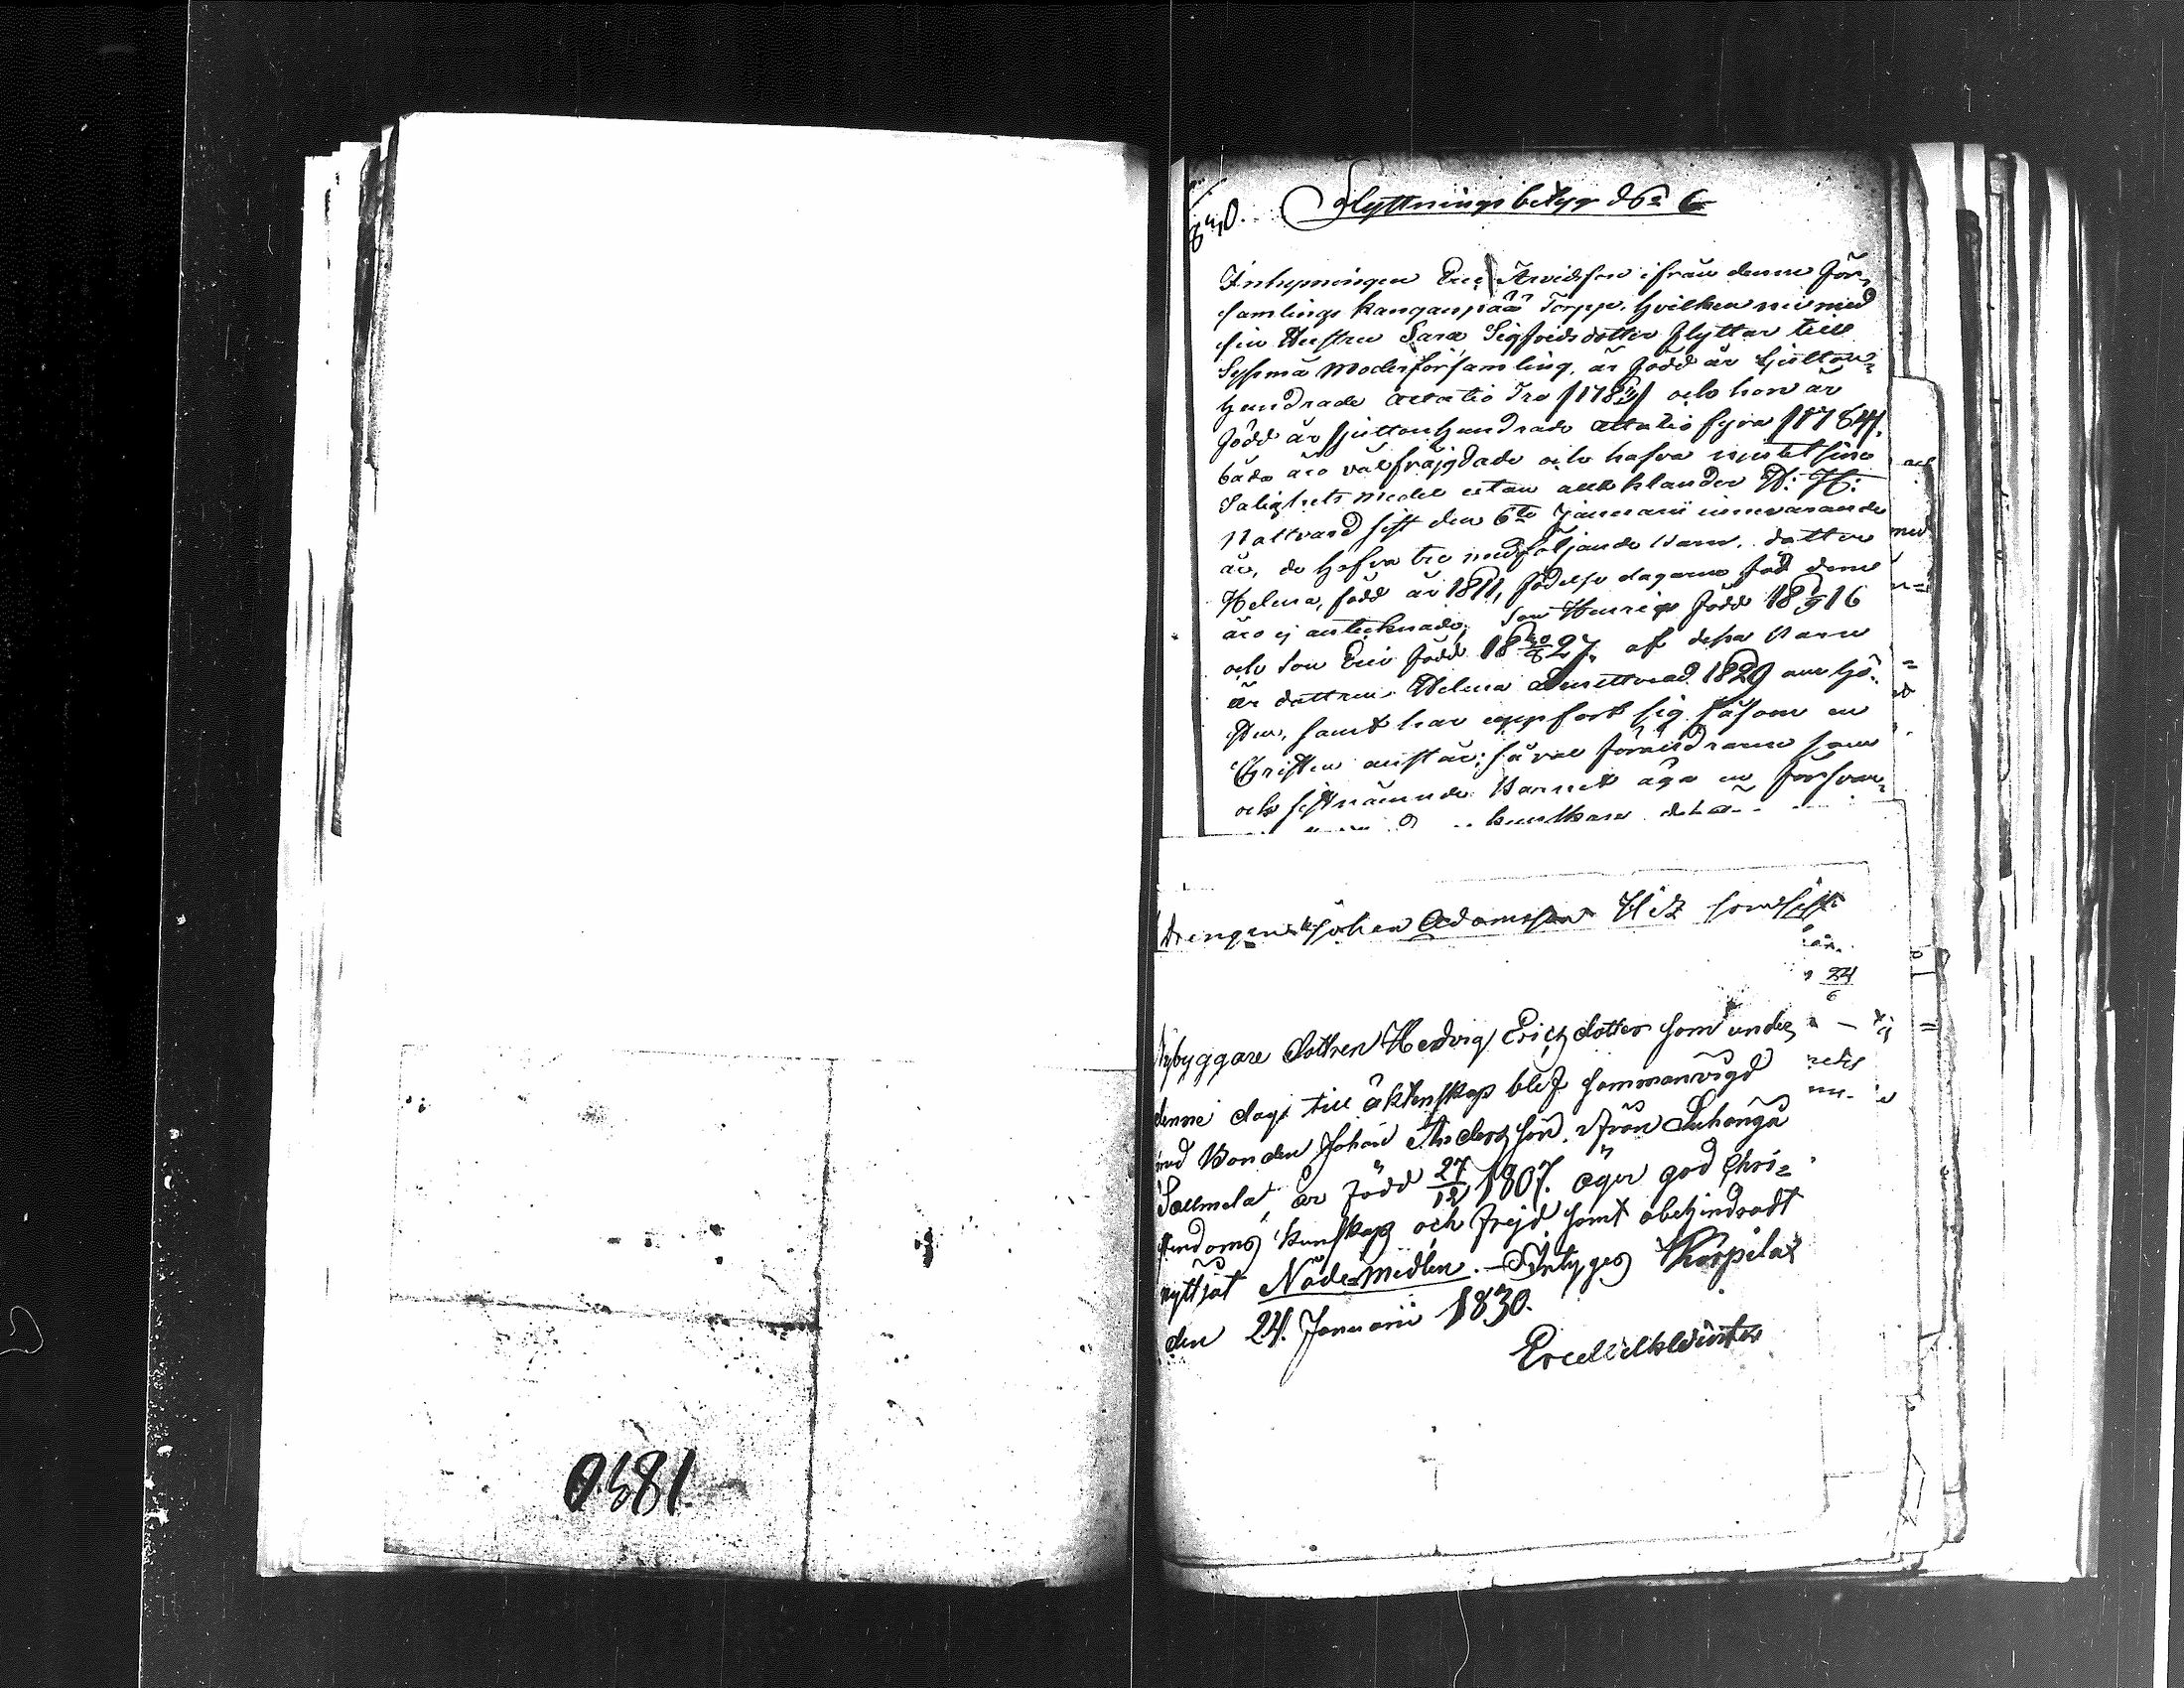 1830
Flyttningsbetyg No 6
Inhysningen Eric Arvidsson ifrån denne För-
samlings Kanganpää Torpp, hvilken nu med
sin Hustru Sara Sigfridsdotter flyttar till
Sysmä Moderförsamling, är född år Sjutton-
hundrade åttatio Tre /1783/ och hon är
född år Sjuttonhundrade åttatio fyra /1784/.
båda äro välfräjgdade och hafva njutit sine
Salighets medel utan allt klander H: H:
Nattvard sist den 6te Januarii innevarande
år, de hafva tre medföljande Barn, dottren
Helena, född år 1811, födelse dagarne
äro ej antecknade, Son Henric född 18 16
och Son Eric född 18 27, af dessa Barn
är dottren Helena admitterad 1829 om hö-
sten, samt har uppfört sig såsom en
Christen anstår; så väl föräldrarne som
och sistnämnde Barnet äga en försvar-
Drengen Johan Adamsson som sist
24
6
Nybyggare dottren Hedvig Ericsdotter som under
denne dag till äktenskap blef sammanvigd
med Bonden Johan Andersson, ifrån Luhanga
Salmela, är född 27/12 1807. äger god Chri-
stendoms kunskap och frejd samt obehindradt
nyttjat Nådemedlen. Intyges Korpilax
den 24. Januarii 1830.